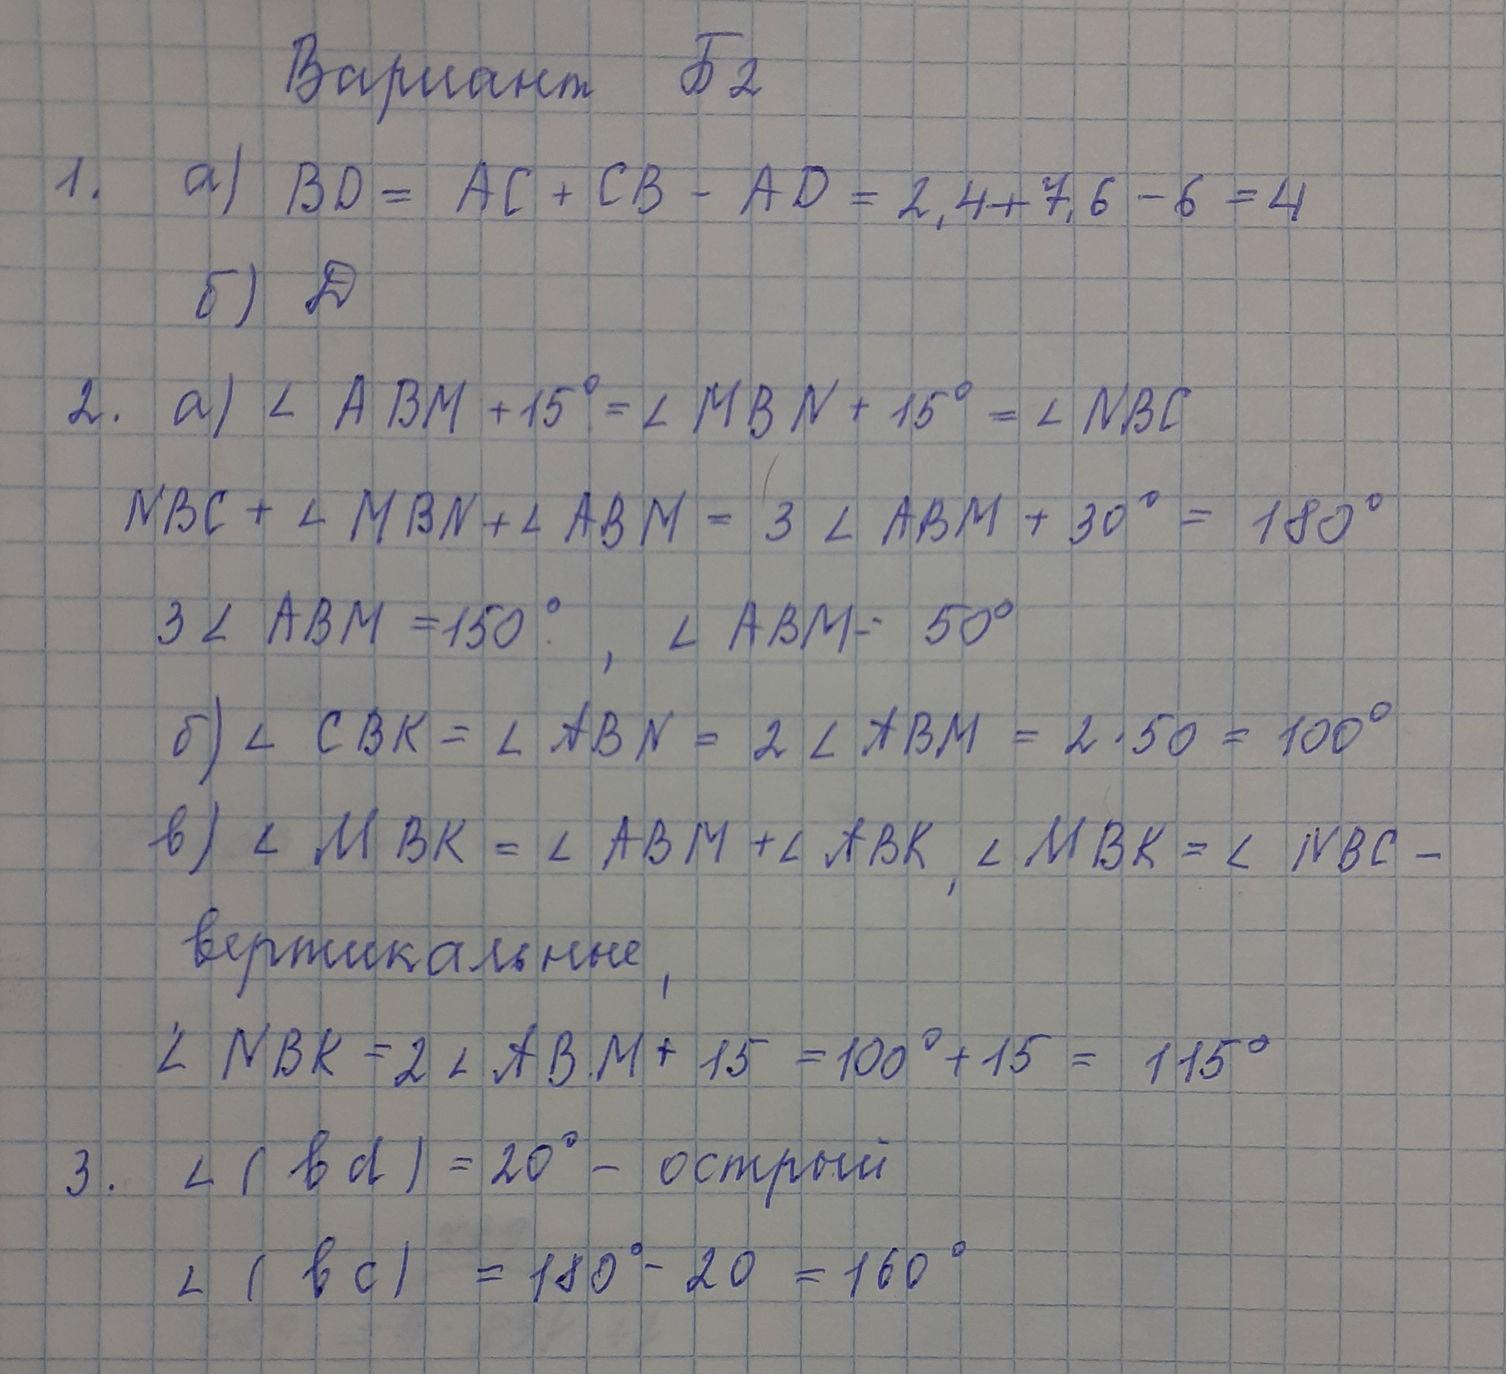 Вариант Б2
1. а) BD = AC + CB - AD = 2,4+7,6 - 6 = 4
б) D
2. а) ∠ ABM + 15° = ∠ MBN + 15° = ∠ NBC
NBC + ∠ MBN + ∠ ABM = 3 ∠ ABM + 30° = 180°
3 ∠ ABM = 150°, ∠ ABM = 50°
б) ∠ CBK = ∠ ABN = 2 ∠ ABM = 2 · 50 = 100°
в) ∠ MBK = ∠ ABM + ∠ ABK, ∠ MBK = ∠ NBC -
вертикальные,
∠ NBK = 2 ∠ ABM + 15 = 100° + 15 = 115°
3. ∠ ( bd ) = 20° - острый
∠ ( bc ) = 180° - 20 = 160°